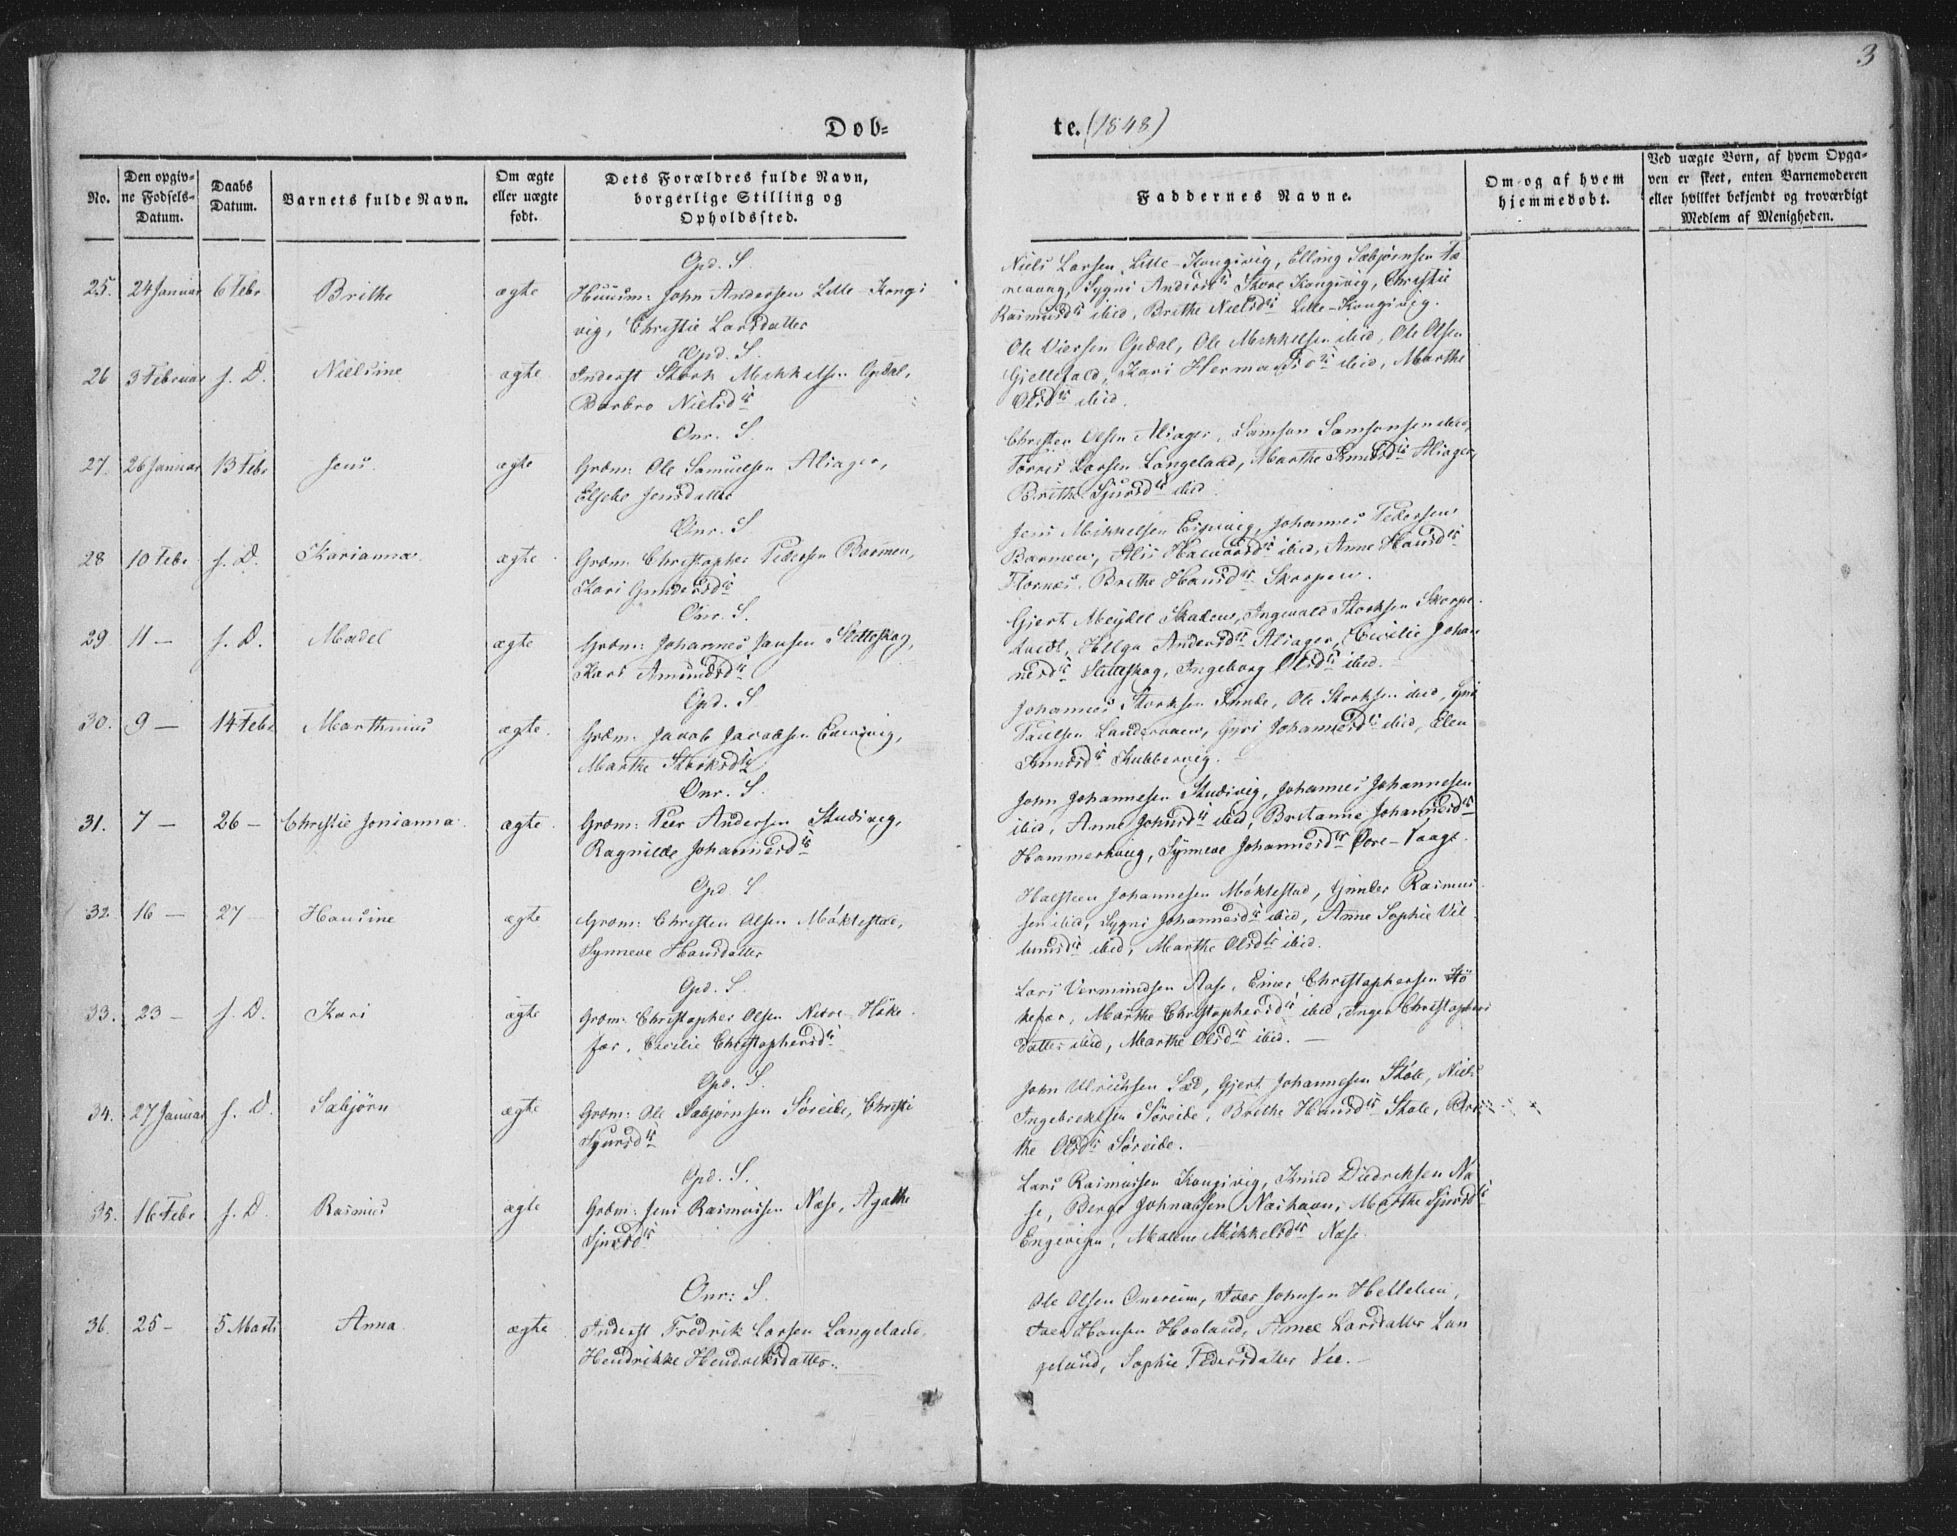 3
Dob=
te. (1848)
No.
Den opgiv=
ne Fødsels=
Datum.
Daabs
Datum.
Barnets fulde Navn.
Om ægte
eller uægte
født.
Dets Forældres fulde Navn,
borgerlige Stilling og
Opholdssted.
Faddernes Navne.
Om og af hvem
hjemmedøbt.
Ved uægte Børn, af hvem Opga=
ven er skeet, enten Barnemoderen
eller hvilket bekjendt og troværdigt
Medlem af Menigheden.
Opd. S.
25. 24 Januar 6 Febr Brithe ægte Huusm: John Andersen Lille-Kongs
vig, Christie Larsdatter
Niels Larsen Lille-Kongsvig, Elling Sæbjørnsen
Sygni Andersdtr Store Kongsvig, Christie
Rasmusdtr ibid, Brithe Nielsdtr Lille-Kongsvig.
Opd. S.
26 3 Februar s. D. Nielsine ægte Inderst Stork Mikkelsen Opdal,
Barbro Nielsdtr
Ole Viersen Opdal, Ole Mikkelsen ibid, Ole Olsen
Kari Hermansdtr ibid, Marthe
Olsdtr ibid.
Onr. S.
27. 26 Januar 13 Febr Jens. ægte Grdm: Ole Samuelsen Aliager,
Elsebe Jensdatter
Christen Olsen Aliager, Samson Samsonsen ibid,
Torres Larsen Langeland, Marthe Knudsdtr Aliager,
Brithe Sjursdtr ibid.
Onr. S
28 10 Febr. s. D. Karianna ægte Grdm: Christopher Pedersen Barmen,
Kari Gundersdtr
Jens Mikkelsen Johannes Pedersen
Barmen, ibid, Anne Hansdtr
Flornæs, Brithe Hansdtr Skorpen.
Onr. S.
29 11 — s. D. Madel ægte Grdm: Johannes Jansen Sletteskog,
Kari Amundsdtr
Gjert Skaden, Ingevald Storksen Skorpe
Helga Andersdtr Aliager, Cecilie Johan
nesdtr Sletteskog, Ingeborg Olsdtr ibid.
Opd. S
30. 9 — 14 Febr Marthinus ægte. Grdm: Jacob Jacobsen
Marthe Storksdtr
Johannes Storksen Ole Storksen ibid,
Paulsen Landervaen, Guri Johannesdtr ibid, Elen
Knudsdtr Skubbervig.
Onr. S.
31. 7 — 26 — Christie Jonianna ægte. Grdm: Peer Andersen Skudvig,
Ragnilde Johannesdtr
John Johannesen Skudvig, Johannes Johannesen
ibid, Anne Johnsdtr ibid, Britanne Johannesdtr
Hammersvig, Synneve Johannesdtr Øvre-Vaage.
Opd. S
32. 16 — 27 Hansine ægte Grdm: Christen Olsen Møklestad,
Synneve Hansdatter
Halsteen Johannesen Møklestad, Gunder Rasmus
sen ibid, Sygni Johannesdtr ibid, Anne Sophie Vil
lumsdtr ibid, Marthe Olsdtr ibid.
Opd. S.
33. 23 — s. D. Kari ægte Grdm: Christopher Olsen Nedre Høke
far, Cecilie Christophersdtr
Lars Vermundsen Aase, Einar Christophersen Hø
kefar, Marthe Christophersdtr ibid, Inger Christophers
datter ibid, Marthe Olsdtr ibid. —
Opd. S.
34. 27 Januar s. D. Sæbjørn ægte Grdm: Ole Sæbjørnsen Søreide, Christi
Sjursdtr
John Ulriksen Sæd, Gjert Johannesen Støle, Niels
Ingebrektsen Søreide, Brithe Hansdtr Støle, Bri
the Olsdtr Søreide.
Opd. S.
35. 16 Febr s. D. Rasmus ægte Grdm: Jens Rasmussen Næse, Agathe
Sjursdtr
Lars Rasmussen Kongsvig, Knud Didriksen Næ
se, Berge Johnassen Næshavn, Marthe Sjursdtr
Engevigen, Malene Mikkelsdtr Næse.
Onr: S.
36. 25 — 5 Marts Anna ægte Inderst Fredrik Larsen Langeland,
Hendrikke Hendriksdatter.
Ole Olsen Onereim, Iver Johnsen Hellelien,
Iver Hansen Hovland, Anne Larsdatter Lan
geland, Sophie Pedersdatter Vee. —